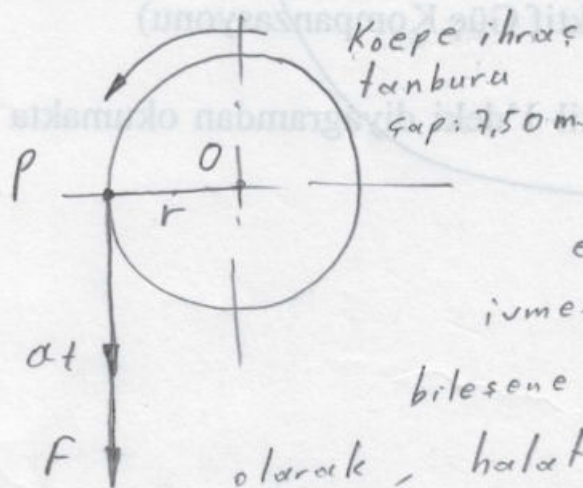 Koepe ihraç
tanburu
çap: 7,50 m
P
O
r
at
ivme
bileşene
F
olarak, halat